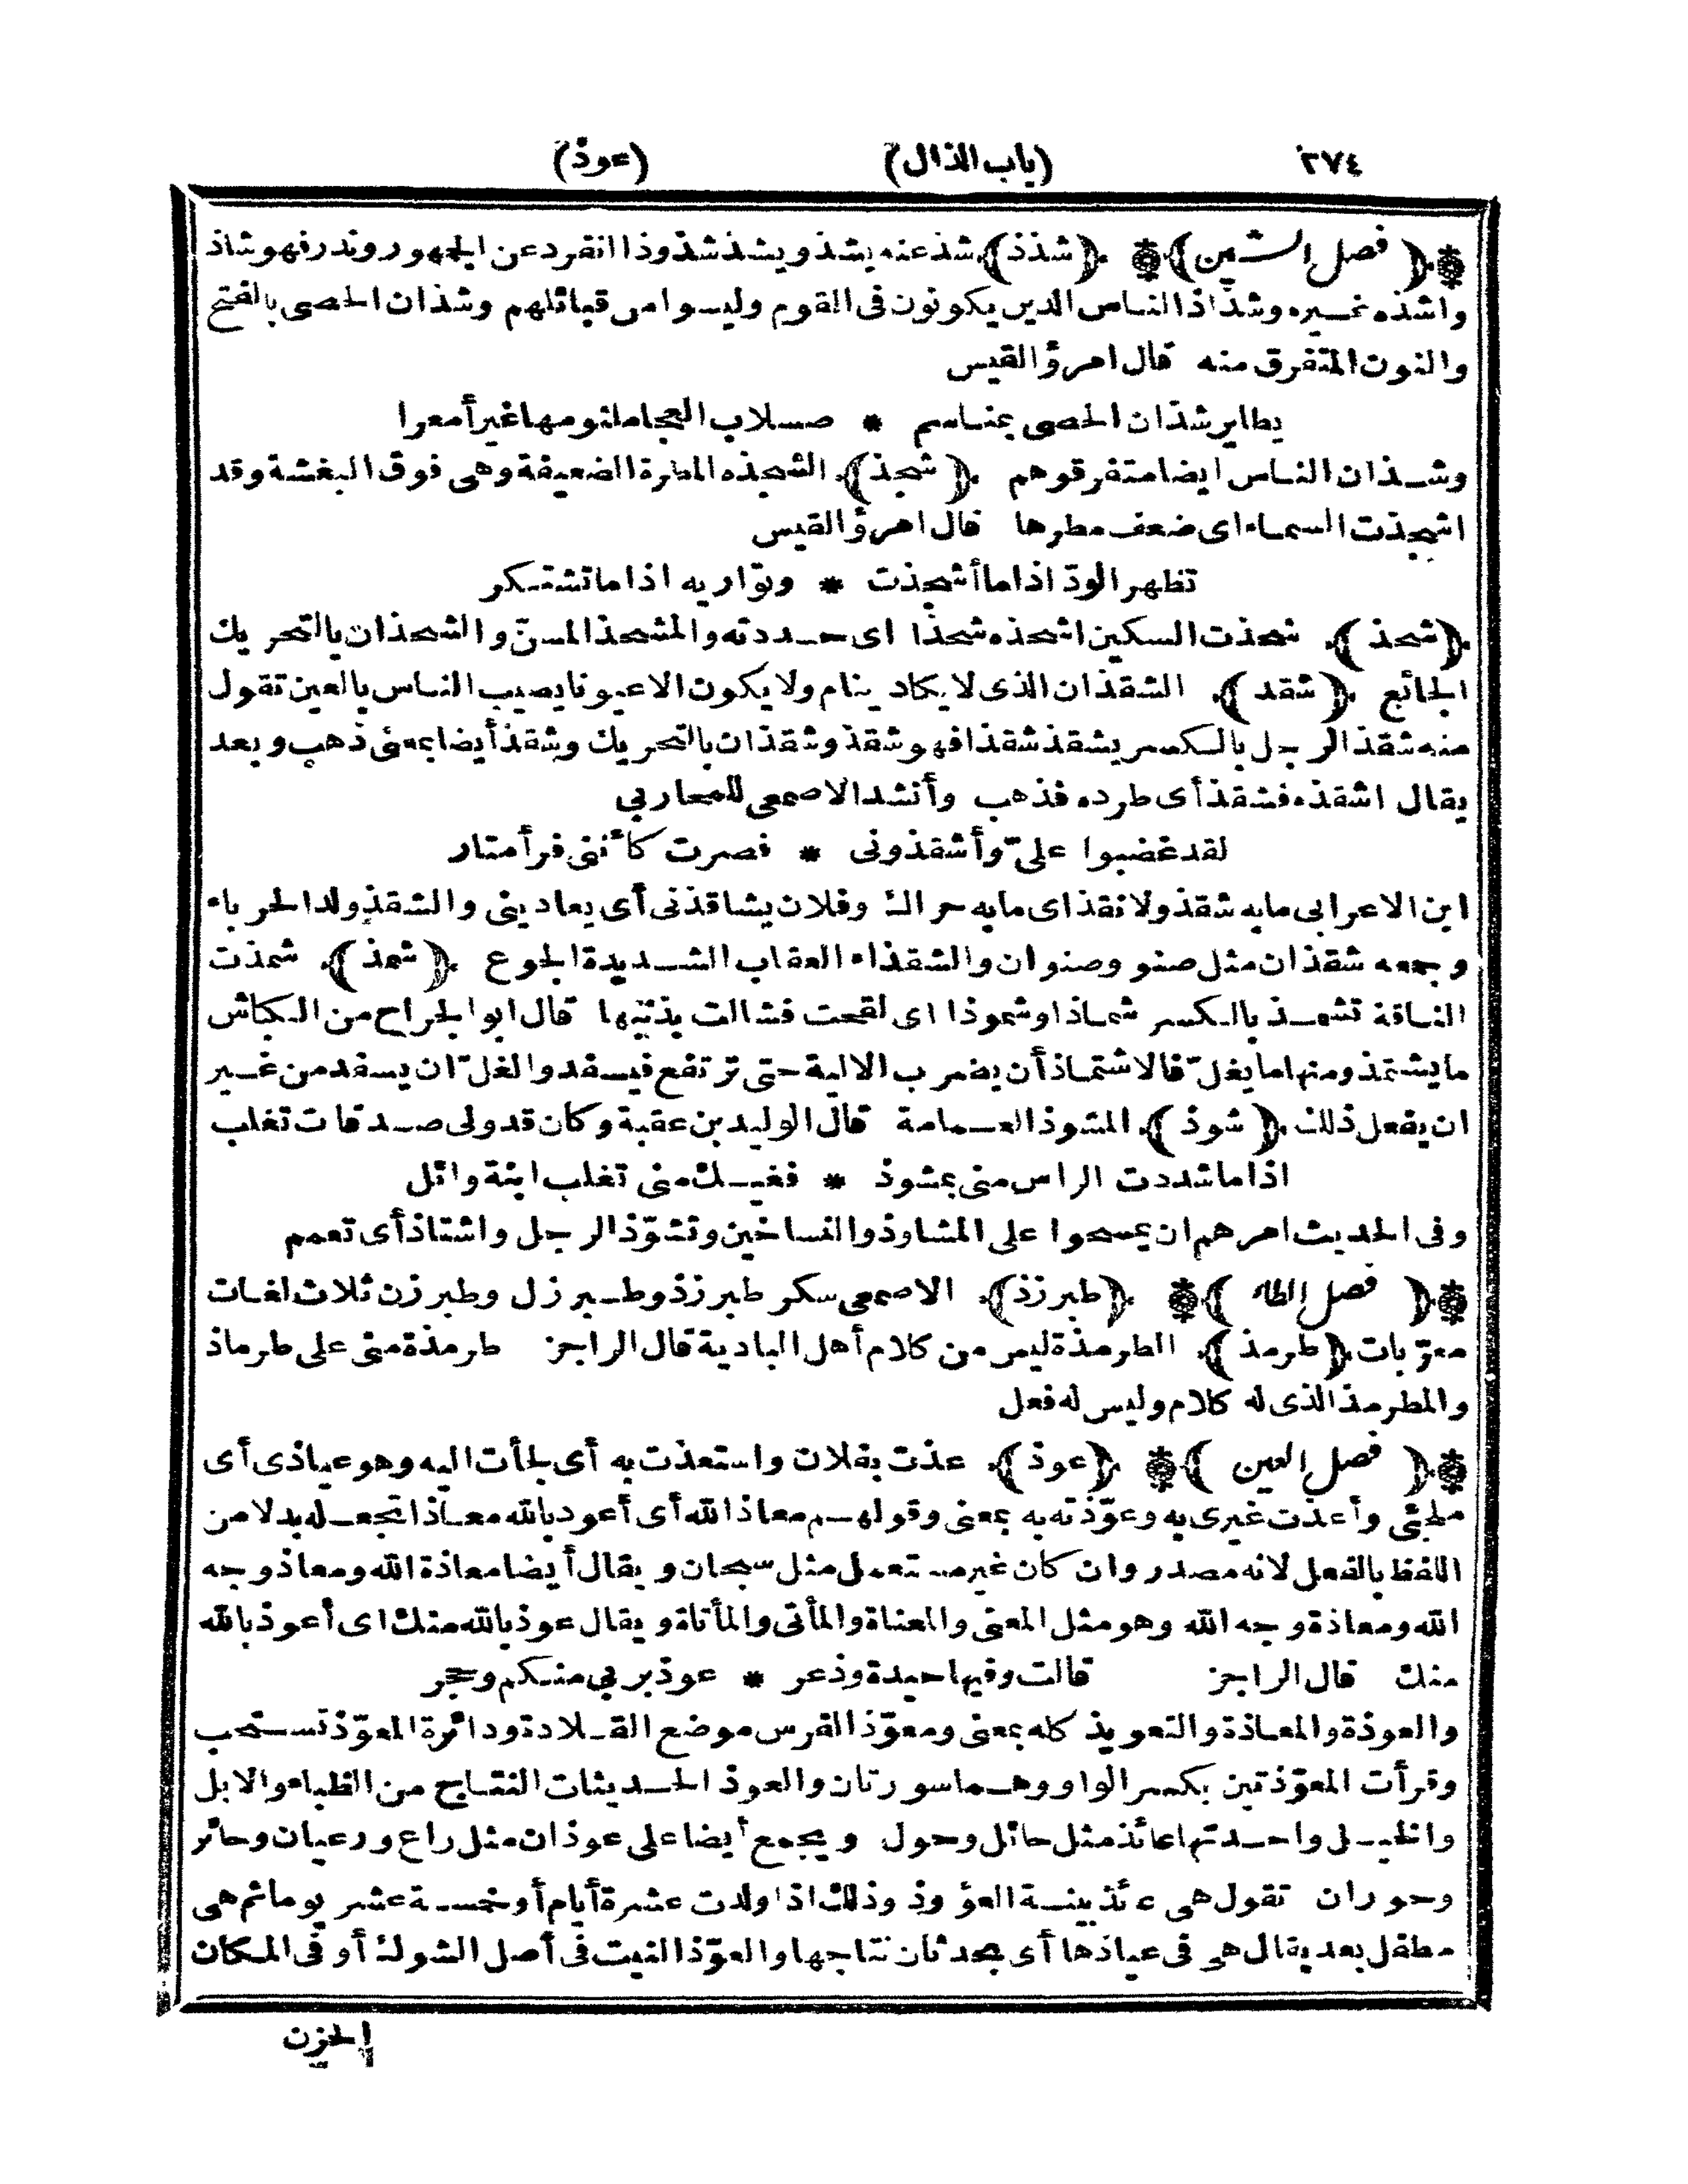 ٢٧٤ (باب الذال) (عوذ)
﴿فصل الشين﴾ ﴿شذذ﴾ شذ عنه يشذ ويشذ شذوذا انفرد عن الجمهور وندر فهو شاذ
واشذه غيره وشذاذ الناس الذين يكونون فى القوم وليسوا من قبائلهم وشذان الحصى بالفتح
والنون المتفرق منه قال امرؤ القيس
يطاير شذان الحصى بمناسم * صلاب العجا ملثومها غير أمعرا
وشذان الناس ايضا متفرقوهم ﴿شجذ﴾ الشجذه المطرة الضعيفة وهى فوق البغشة وقد
اشجذت السماء اى ضعف مطرها قال امرؤ القيس
تظهر الودّ اذا ما أشجذت * وتواريه اذا ما تشتكر
﴿شحذ﴾ شحذت السكين اشحذه شحذا اى حددته والمشحذ المسنّ والشحذان بالتحريك
الجائع ﴿شقذ﴾ الشقذان الذى لا يكاد ينام ولا يكون الا عيونا يصيب الناس بالعين تقول
منه شقذ الرجل بالكسر يشقذ شقذا فهو شقذ وشقذان بالتحريك وشقذ أيضا بمعنى ذهب وبعد
يقال اشقذه فشقذ أى طرده فذهب وأنشد الاصمعى للمحاربي
لقد غضبوا علىّ وأشقذونى * فصرت كأننى فرأ متار
ابن الاعرابى ما به شقذ ولا نقذ اى ما به حراك وفلان يشاقذنى أى يعادينى والشقذ ولد الحرباء
وجمعه شقذان مثل صنو وصنوان والشقذاء العقاب الشديدة الجوع ﴿شمذ﴾ شمذت
الناقة تشمذ بالكسر شماذا وشموذا اى لقحت فشالت بذنبها قال ابو الجراح من الكباش
ما يشتمذ ومنها ما يغلّ فالاشتماذ أن يضرب الالية حتى ترتفع فيسفد والغلّ ان يسفد من غير
ان يفعل ذلك ﴿شوذ﴾ المشوذ العمامة قال الوليد بن عقبة وكان قد ولى صدقات تغلب
اذا ما شددت الراس منى بمشوذ * فغيك منى تغلب ابنة وائل
وفى الحديث امرهم ان يمسحوا على المشاوذ والتساخين وتشوّذ الرجل واشتاذ أى تعمم
﴿فصل الطاء﴾ ﴿طبرزذ﴾ الاصمعى سكر طبرزذ وطبرزل وطبرزن ثلاث لغات
معرّبات ﴿طرمذ﴾ الطرمذة ليس من كلام أهل البادية قال الراجز طرمذة منى على طرماذ
والمطرمذ الذى له كلام وليس له فعل
﴿فصل العين﴾ ﴿عوذ﴾ عذت بفلان واستعذت به أى لجأت اليه وهو عياذى أى
ملجئى وأعذت غيرى به وعوّذته به بمعنى وقولهم معاذ الله أى أعوذ بالله معاذا تجعله بدلا من
اللفظ بالفعل لانه مصدر وان كان غير مستعمل مثل سبحان ويقال أيضا معاذة الله ومعاذ وجه
الله ومعاذة وجه الله وهو مثل المعنى والمعناة والمأتى والمأتاة ويقال عوذ بالله منك اى أعوذ بالله
منك قال الراجز قالت وفيها حيدة وذعر * عوذ بربي منكم وحجر
والعوذة والمعاذة والتعويذ كله بمعنى ومعوّذ الفرس موضع القلادة ودائرة المعوّذ تستحب
وقرأت المعوّذتين بكسر الواو وهما سورتان والعوذ الحديثات النتاج من الظباء والابل
والخيل واحدتها عائذ مثل حائل وحول ويجمع أيضا على عوذان مثل راع ورعيان وحائر
وحوران تقول هى عائذ بينة العؤوذ وذلك اذا ولدت عشرة أيام أو خمسة عشر يوما ثم هى
مطفل بعد يقال هى فى عياذها أى بحدثان نتاجها والعوّذ النبت فى أصل الشوك أو فى المكان
الحزن